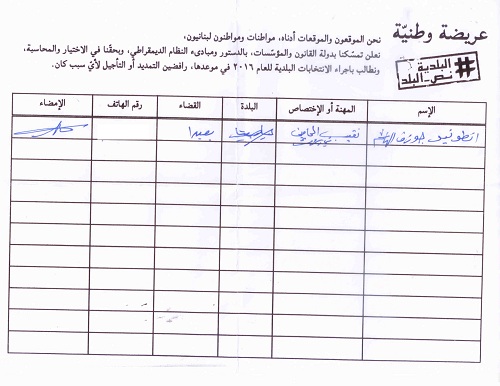 عريضة وطنيّة
#البلدية_نص_البلد
نحن الموقعون والموقعات أدناه، مواطنات ومواطنون لبنانيون،
نعلن تمسّكنا بدولة القانون والمؤسّسات، بالدستور ومبادىء النظام الديمقراطي، وبحقّنا في الاختيار والمحاسبة،
ونطالب باجراء الانتخابات البلدية للعام ٢٠١٦ في موعدها، رافضين التمديد أو التأجيل لأيّ سبب كان.
الإسم المهنة أو الإختصاص البلدة القضاء رقم الهاتف الإمضاء
انطونيو جوزف الهاشم نقيب المحامين بعبدا